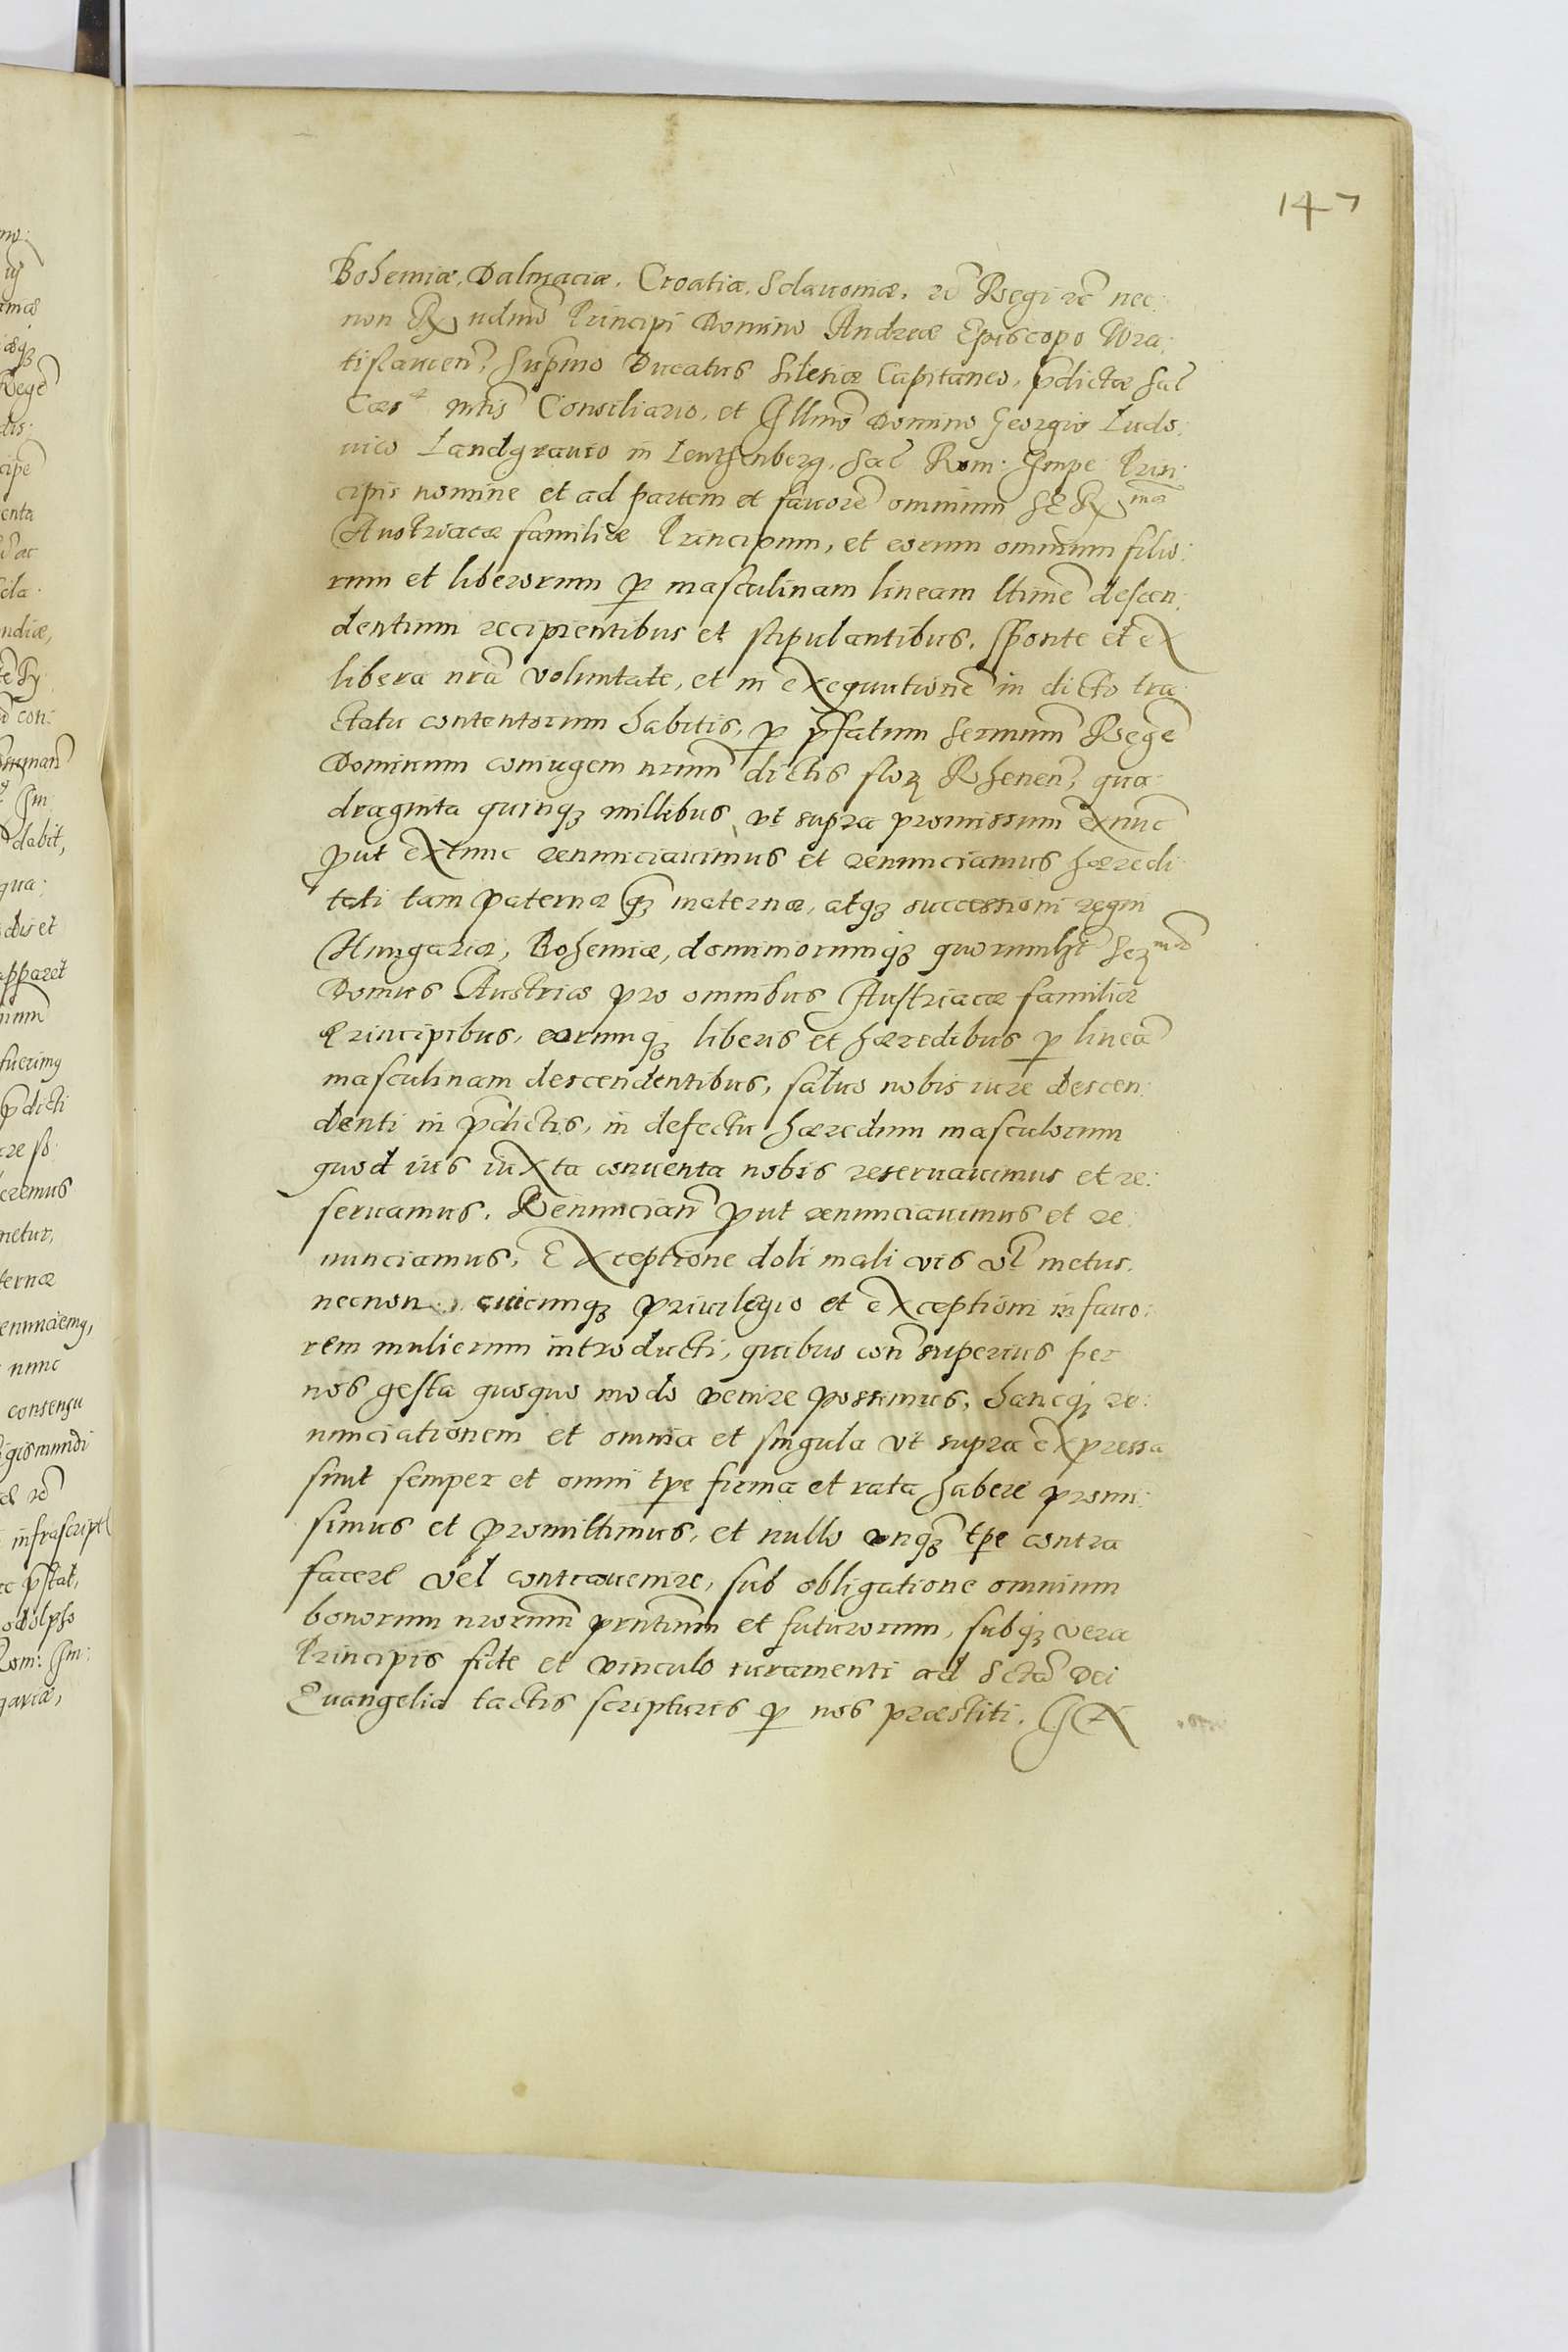 147
Bohemiæ, Dalmaciæ, Croatiæ, Sclauoniæ, ꝛc̃ Regi ꝛc̃ nec:
non R̃udmo Principi Domino Andreæ Episcopo Wra:
tislauien̄, Sup̃mo Ducatus Silesiæ Capitaneo, p̃dictæ Sac̃
Caes mt̃is Consiliario, et Illmo Domino Georgio Ludo:
uico Landgrauio in Leuthenberg, Sac̃ Rom: Impe: Prin:
cipis nomine et ad partem et fauore omnium
Austriacæ familiæ Principum, et eorum omnium filio:
rum et liberorum ꝑ masculinam lineam ltime descen:
dentium recipientibus et stipulantibus, Sponte et ex
libera nr̃a voluntate, et in exequutione in dicto tra
ctatu contentorum habitis, ꝑ p̃fatum Sermum Rege
Dominum coniugem nrum dictis flor Rhenen̄, qua:
draginta quinqꝫ millibus, vt supra promissum exnuc
ꝓut extunc renunciauimus et renunciamus hæredi
tati tam paternæ qꝫ maternæ, atqꝫ successioni regni
Hungariæ, Bohemiæ, dominiorumqꝫ quorumlꝫt Ser
Domus Austriæ pro omnibus Austriacæ familiæ
Principibus, eorumqꝫ liberis et hæredibus ꝑ linea
masculinam descendentibus, saluo nobis iure descen:
denti in p̃dictis, in defectu hæredum masculorum
quod ius iuxta conuenta nobis reseruauimus et re:
seruamus. Renuncian̄ ꝓut renunciauimus et re:
nunciamus, Exceptione doli mali vis vl̃ metus,
necnon cuicunqꝫ priuilegio et exceptioni in fauo:
rem mulierum introducti, quibus con̄ superius per
nos gesta quoquo modo venire possimus, hancqꝫ re:
nunciationem et omnia et singula vt supra expressa
sint semper et omni tp̃e firma et rata habere promi:
simus et promittimus, et nullo vnqꝫ tp̃e contra
facere vel contrauenire, sub obligatione omnium
bonorum nrorum prntium et futurorum, subqꝫ vera
Principis fide et vinculo iuramenti ad scta Dei
Euangelia tactis scripturis ꝑ nos præstiti.